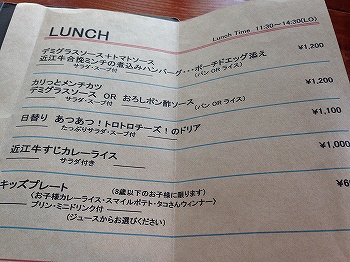 LUNCH
Lunch Time 11:30〜14:30(LO)
デミグラスソース＋トマトソース
近江牛合挽ミンチの煮込みハンバーグ・・・ポーチドエッグ添え ¥1,200
サラダ・スープ付 (パン OR ライス)
カリっとメンチカツ ¥1,200
デミグラスソース OR おろしポン酢ソース
サラダ・スープ付 (パン OR ライス)
日替り あつあつ！トロトロチーズ！のドリア ¥1,100
たっぷりサラダ・スープ付
近江牛すじカレーライス ¥1,000
サラダ付き
キッズプレート (8歳以下のお子様に限ります)
〈お子様カレーライス・スマイルポテト・タコさんウィンナー〉
プリン・ミニドリンク付
(ジュースからお選びください)